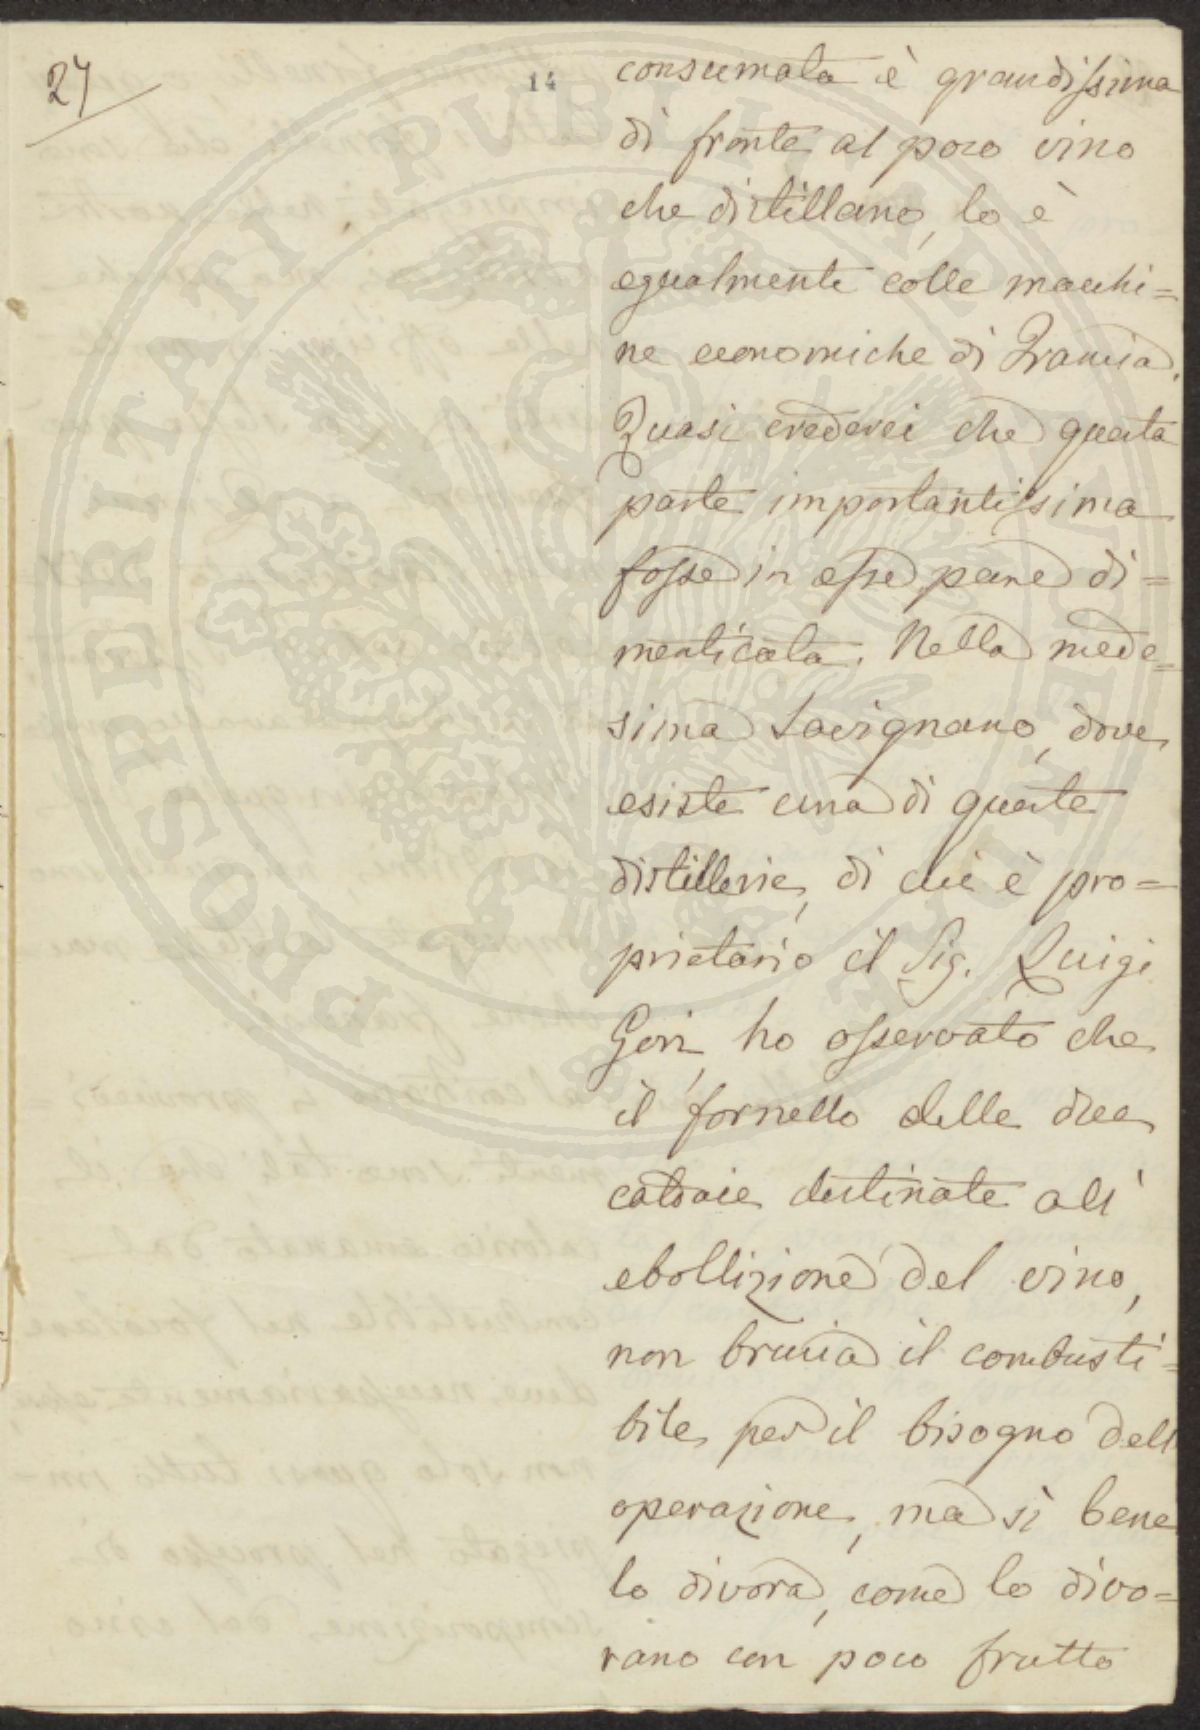 27
14
consumata è grandissima
di fronte al poco vino
che distillano, lo è
egualmente colle macchi=
ne economiche di Francia.
Quasi crederei che questa
parte importantissima
fosse in esse pane di=
menticata. Nella mede=
sima Savignano, dove
esiste una di queste
distillerie, di cui è pro=
prietario il Sig. Luigi
Gori, ho osservato che
il fornello delle due
caldaie destinate all'
ebollizione del vino,
non brucia il combusti=
bile per il bisogno dell'
operazione, ma sì bene
lo divora, come lo divo=
rano con poco frutto
PROSPERITATI PUBLICAE